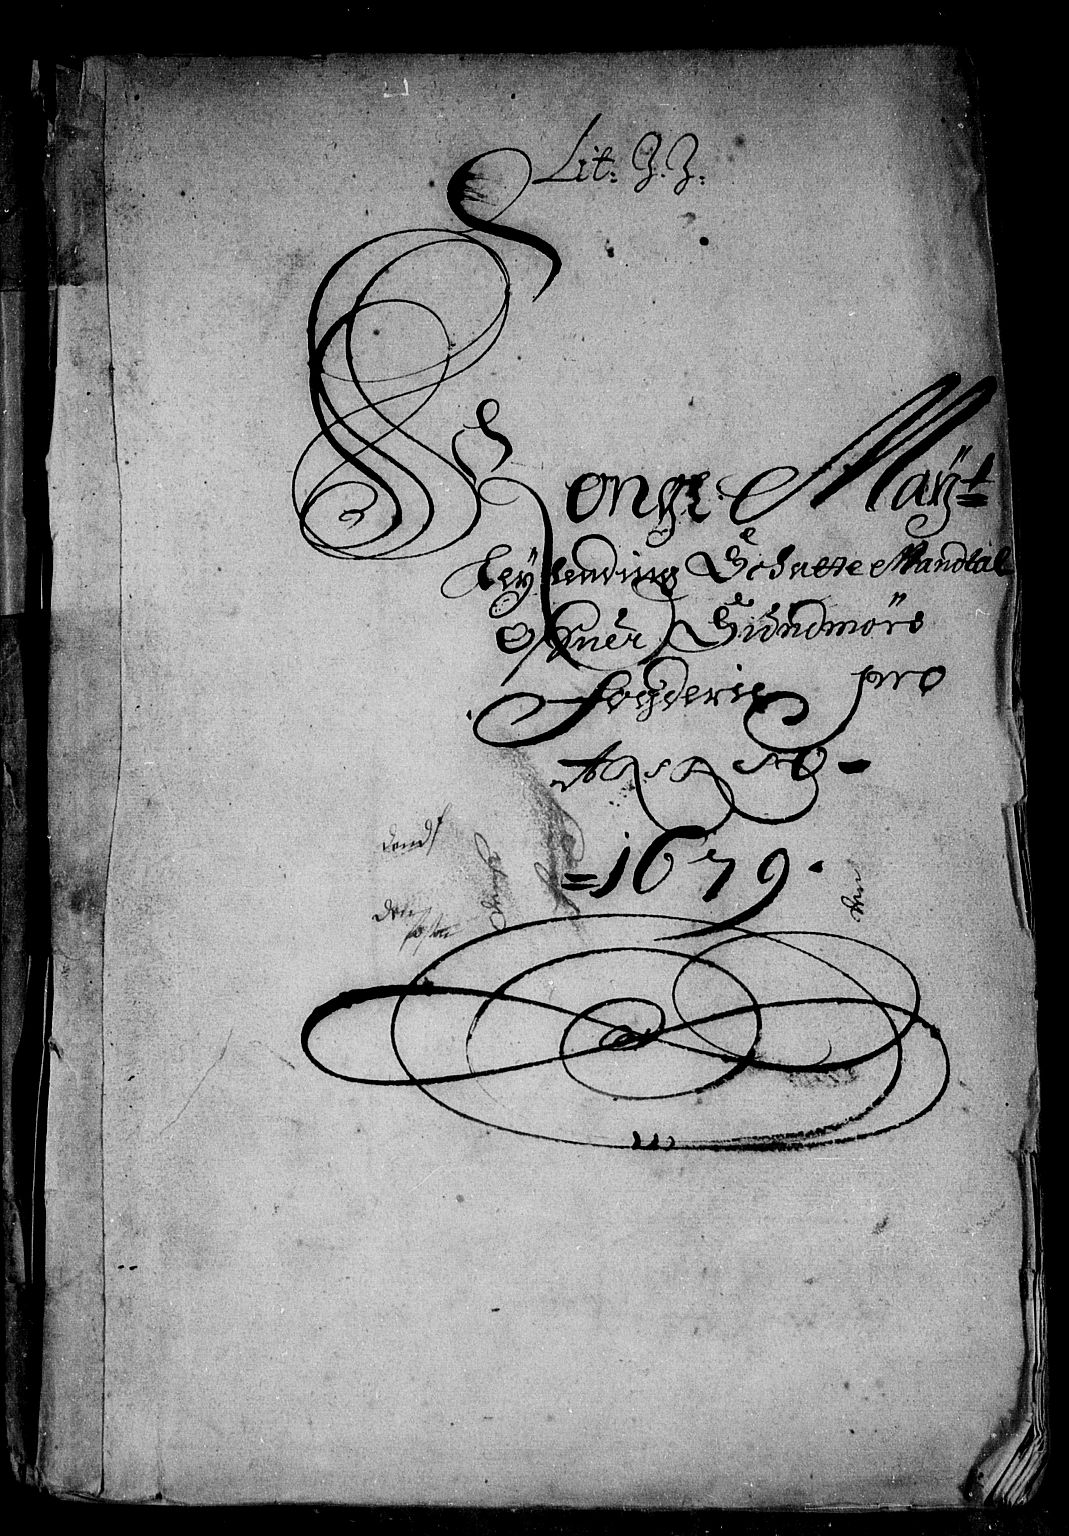 Lit: J. J.
Kongl. Maÿt
Leÿlending Schatte Mandtal
Ofuer Sundmörs
Fogderie pro
Anno
=1679.